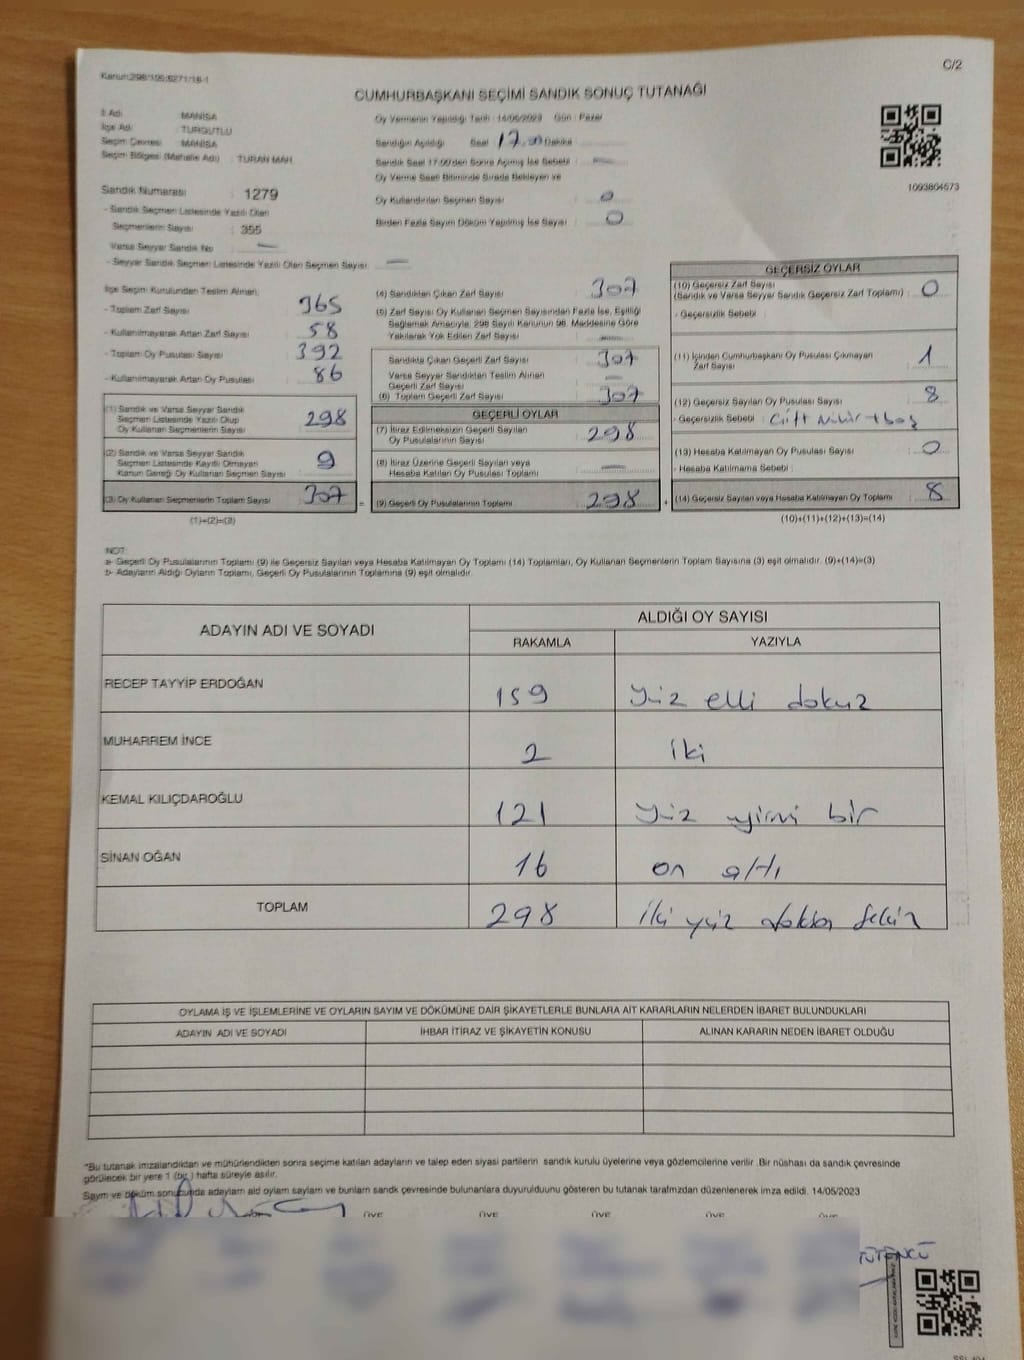 Kanun:298/105;6271/18-1
C/2
CUMHURBAŞKANI SEÇİMİ SANDIK SONUÇ TUTANAĞI
İl Adı : MANİSA
İlçe Adı : TURGUTLU
Seçim Çevresi : MANİSA
Seçim Bölgesi (Mahalle Adı) : TURAN MAH
Sandık Numarası : 1279
- Sandık Seçmen Listesinde Yazılı Olan
Seçmenlerin Sayısı : 355
Varsa Seyyar Sandık No : —
- Seyyar Sandık Seçmen Listesinde Yazılı Olan Seçmen Sayısı : —
Oy Vermenin Yapıldığı Tarih : 14/05/2023 Gün : Pazar
Sandığın Açıldığı Saat : 17.00 Dakika
Sandık Saat 17:00'den Sonra Açılmış İse Sebebi : —
Oy Verme Saati Bitiminde Sırada Bekleyen ve
Oy Kullandırılan Seçmen Sayısı : 0
Birden Fazla Sayım Döküm Yapılmış İse Sayısı : 0
1093804573
İlçe Seçim Kurulundan Teslim Alınan;
- Toplam Zarf Sayısı : 365
- Kullanılmayarak Artan Zarf Sayısı : 58
- Toplam Oy Pusulası Sayısı : 392
- Kullanılmayarak Artan Oy Pusulası : 86
(1) Sandık ve Varsa Seyyar Sandık
Seçmen Listesinde Yazılı Olup
Oy Kullanan Seçmenlerin Sayısı : 298
(2) Sandık ve Varsa Seyyar Sandık
Seçmen Listesinde Kayıtlı Olmayan
Kanun Gereği Oy Kullanan Seçmen Sayısı : 9
(3) Oy Kullanan Seçmenlerin Toplam Sayısı : 307
(1)+(2)=(3)
(4) Sandıktan Çıkan Zarf Sayısı : 307
(5) Zarf Sayısı Oy Kullanan Seçmen Sayısından Fazla İse, Eşitliği
Sağlamak Amacıyla; 298 Sayılı Kanunun 98. Maddesine Göre
Yakılarak Yok Edilen Zarf Sayısı : —
Sandıkta Çıkan Geçerli Zarf Sayısı : 307
Varsa Seyyar Sandıktan Teslim Alınan
Geçerli Zarf Sayısı : —
(6) Toplam Geçerli Zarf Sayısı : 307
GEÇERLİ OYLAR
(7) İtiraz Edilmeksizin Geçerli Sayılan
Oy Pusulalarının Sayısı : 298
(8) İtiraz Üzerine Geçerli Sayılan veya
Hesaba Katılan Oy Pusulası Toplamı : —
= (9) Geçerli Oy Pusulalarının Toplamı : 298 +
GEÇERSİZ OYLAR
(10) Geçersiz Zarf Sayısı
(Sandık ve Varsa Seyyar Sandık Geçersiz Zarf Toplamı) : 0
- Geçersizlik Sebebi :
(11) İçinden Cumhurbaşkanı Oy Pusulası Çıkmayan
Zarf Sayısı : 1
(12) Geçersiz Sayılan Oy Pusulası Sayısı : 8
- Geçersizlik Sebebi : Çift Mühür + boş
(13) Hesaba Katılmayan Oy Pusulası Sayısı : 0
- Hesaba Katılmama Sebebi :
(14) Geçersiz Sayılan veya Hesaba Katılmayan Oy Toplamı : 8
(10)+(11)+(12)+(13)=(14)
NOT:
a- Geçerli Oy Pusulalarının Toplamı (9) ile Geçersiz Sayılan veya Hesaba Katılmayan Oy Toplamı (14) Toplamları, Oy Kullanan Seçmenlerin Toplam Sayısına (3) eşit olmalıdır. (9)+(14)=(3)
b- Adayların Aldığı Oyların Toplamı, Geçerli Oy Pusulalarının Toplamına (9) eşit olmalıdır.
ADAYIN ADI VE SOYADI
ALDIĞI OY SAYISI
RAKAMLA YAZIYLA
RECEP TAYYİP ERDOĞAN 159 yüz elli dokuz
MUHARREM İNCE 2 iki
KEMAL KILIÇDAROĞLU 121 yüz yirmi bir
SİNAN OĞAN 16 on altı
TOPLAM 298 iki yüz doksan sekiz
OYLAMA İŞ VE İŞLEMLERİNE VE OYLARIN SAYIM VE DÖKÜMÜNE DAİR ŞİKAYETLERLE BUNLARA AİT KARARLARIN NELERDEN İBARET BULUNDUKLARI
ADAYIN ADI VE SOYADI İHBAR İTİRAZ VE ŞİKAYETİN KONUSU ALINAN KARARIN NEDEN İBARET OLDUĞU
"Bu tutanak imzalandıktan ve mühürlendikten sonra seçime katılan adayların ve talep eden siyasi partilerin sandık kurulu üyelerine veya gözlemcilerine verilir .Bir nüshası da sandık çevresinde
görülecek bir yere 1 (bir ) hafta süreyle asılır.
Sayım ve döküm sonucunda adayların ald oyların sayları ve bunların sandk çevresinde bulunanlara duyurulduunu gösteren bu tutanak tarafmzdan düzenlenerek imza edildi. 14/05/2023
ÜYE ÜYE ÜYE ÜYE ÜYE
TÜTÜNCÜ